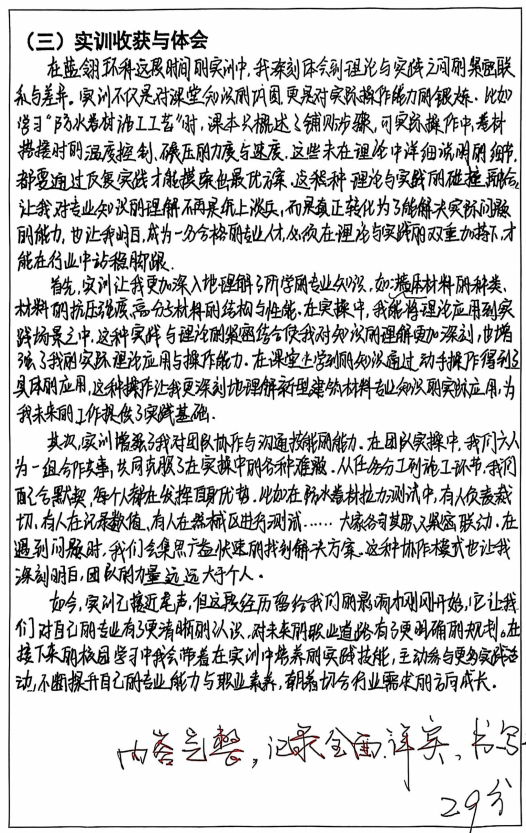 (三)实训收获与体会
在蓝翎环科这段时间的实训中,我深刻体会到理论与实践之间的紧密联
系与差异。实训不仅是对课堂知识的巩固,更是对实际操作能力的锻炼。比如
学习“防水卷材施工工艺”时,课本只概述了铺贴步骤,可实际操作中,卷材
搭接时的温度控制、碾压的力度与速度,这些未在理论中详细说明的细节,
都要通过反复实践才能摸索出最优方案。这种种理论与实践的碰撞融合,
让我对专业知识的理解不再是纸上谈兵,而是真正转化为了能解决实际问题
的能力,也让我明白,成为一名合格的专业人才,必须在理论与实践的双重加持下,才
能在行业中站稳脚跟。
首先,实训让我更加深入地理解了所学的专业知识。如:墙体材料的种类、
材料的抗压强度、高分子材料的结构与性能。在实操中,我能将理论应用到实
践场景之中,这种实践与理论的紧密结合使我对知识的理解更加深刻,也增
强了我的实际理论应用与操作能力。在课堂上学到的知识通过动手操作得到了
具体的应用,这种操作让我更深刻地理解新型建筑材料专业知识的实际应用,为
我未来的工作提供了实践基础。
其次,实训增强了我对团队协作与沟通技能的能力。在团队实操中,我们六人
为一组合作共事,共同克服了在实操中的各种难题。从任务分工到施工环节,我们
配合默契,每个人都在发挥自身优势。比如在防水卷材拉力测试中,有人负责裁
切,有人在记录数值,有人在器械区进行测试……大家各司其职又紧密联动。在
遇到问题时,我们会集思广益快速的找到解决方案。这种协作模式也让我
深刻明白,团队的力量远远大于个人。
如今,实训已接近尾声,但这段经历留给我们的影响才刚刚开始,它让我
们对自己的专业有了更清晰的认识,对未来的职业道路有了更明确的规划。在
接下来的校园学习中我会带着在实训中培养的实践技能,主动参与更多实践活
动,不断提升自己的专业能力与职业素养,朝着切合行业需求的方向成长。
内容完整,记录全面、详实、书写
29分